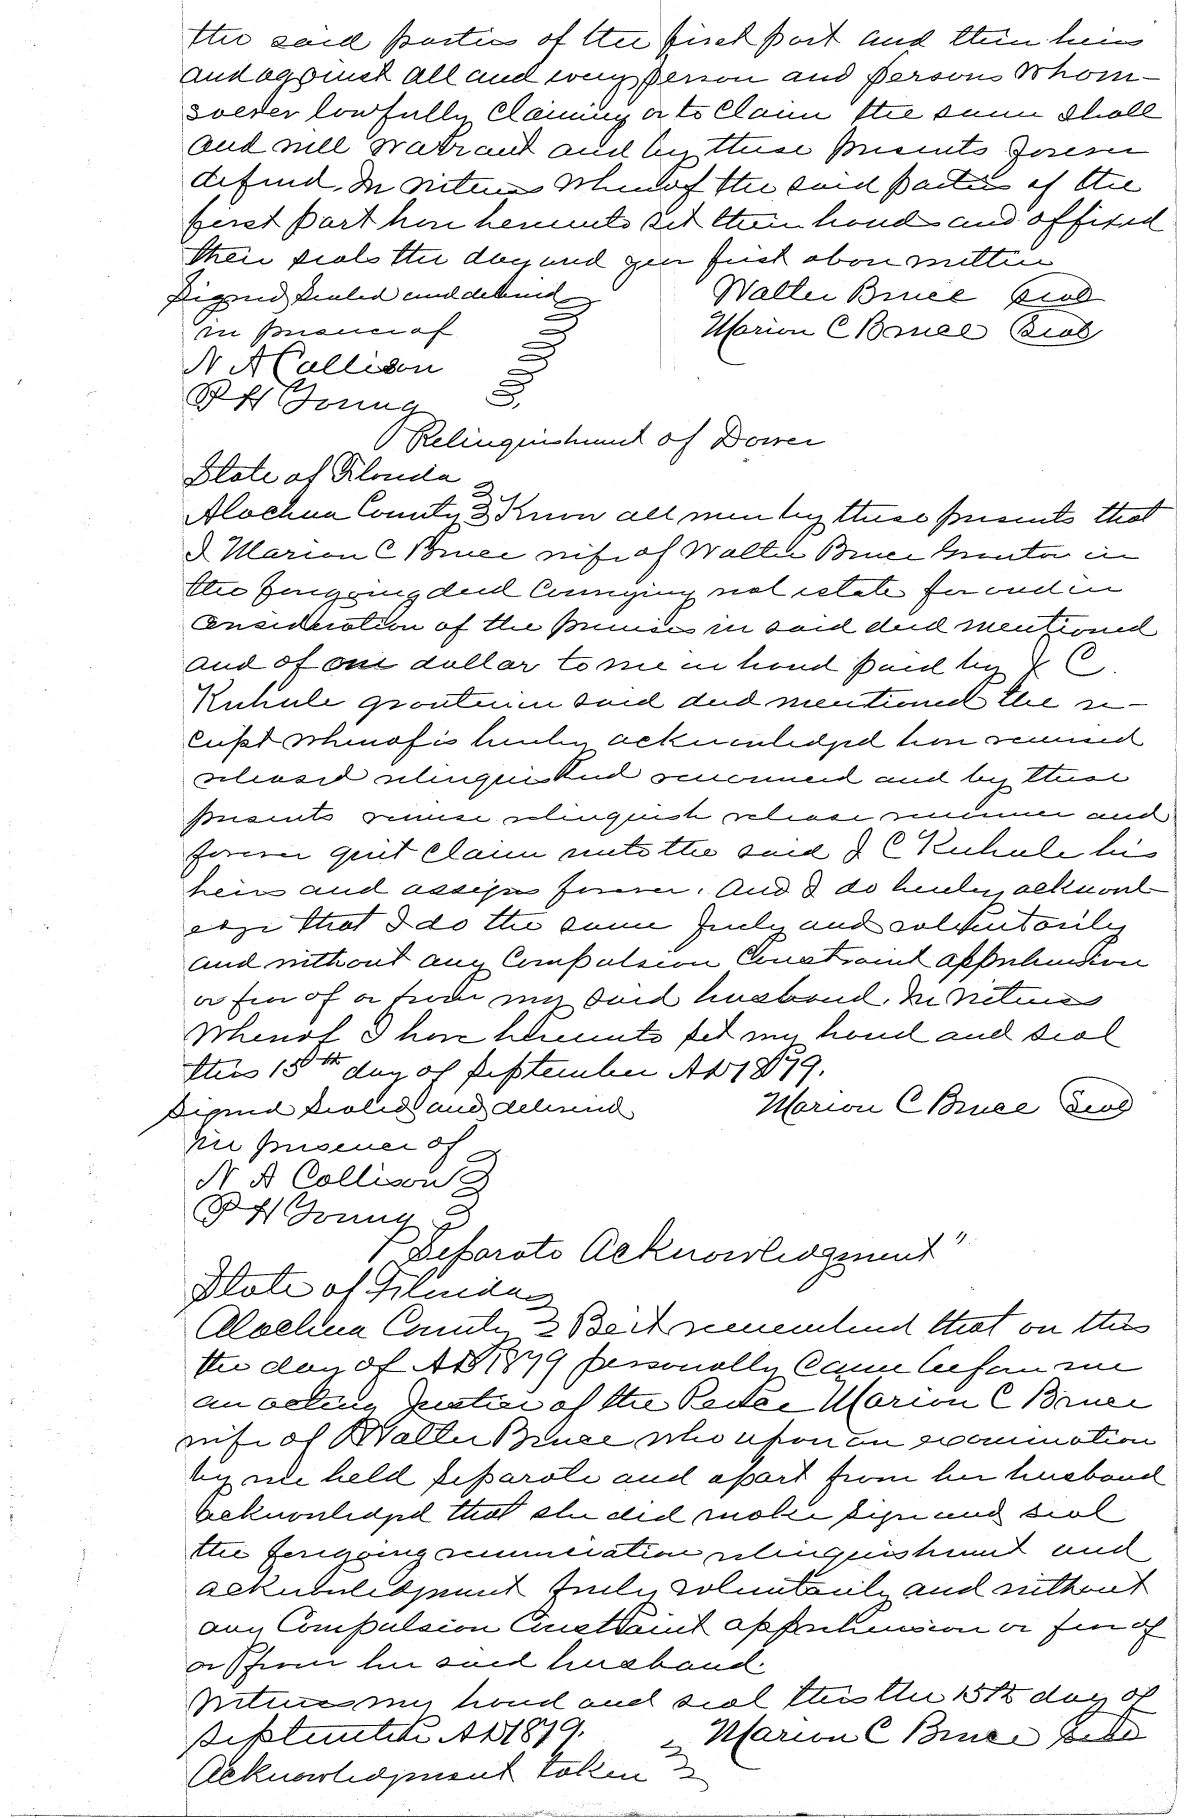 the said parties of the first part and their heirs
and against all and every person and persons whom-
soever lawfully Claiming or to Claim the same shall
and will warrant and by these presents forever
defend. In witness whereof the said parties of the
first part have hereunto set their hands and affixed
their seals the day and year first above written
Signed Sealed and delivered Walter Bruce Seal
in presence of Marion C Bruce Seal
N A Collison
P H Young
Relinquishment of Dower
State of Florida
Alachua County Know all men by these presents that
I Marion C Bruce wife of Walter Bruce Grantor in
the foregoing deed Conveying real estate for and in
Consideration of the premises in said deed mentioned
and of one dollar to me in hand paid by J C.
Kuhule grantee in said deed mentioned the re-
ceipt whereof is hereby acknowledged have remised
released relinquished renounced and by these
presents remise relinquish release renounce and
forever quit Claim unto the said J C Kuhule his
heirs and assigns forever. And I do hereby acknowl-
edge that I do the same freely and voluntarily
and without any Compulsion Constraint apprehension
or fear of or from my said husband. In witness
Whereof I have hereunto set my hand and seal
this 15th day of September AD 1879.
Signed Sealed and delivered Marion C Bruce Seal
in presence of
N A Collison
P H Young
Separate Acknowledgment"
State of Florida
Alachua County Be it remembered that on this
the day of AD 1879 personally Came before me
an acting Justice of the Peace Marion C Bruce
wife of Walter Bruce who upon an examination
by me held separate and apart from her husband
acknowledged that she did make sign and seal
the foregoing renunciation relinquishment and
acknowledgment freely voluntarily and without
any Compulsion Constraint apprehension or fear of
or from her said husband.
Witness my hand and seal this the 15th day of
September AD 1879. Marion C Bruce Seal
Acknowledgment taken